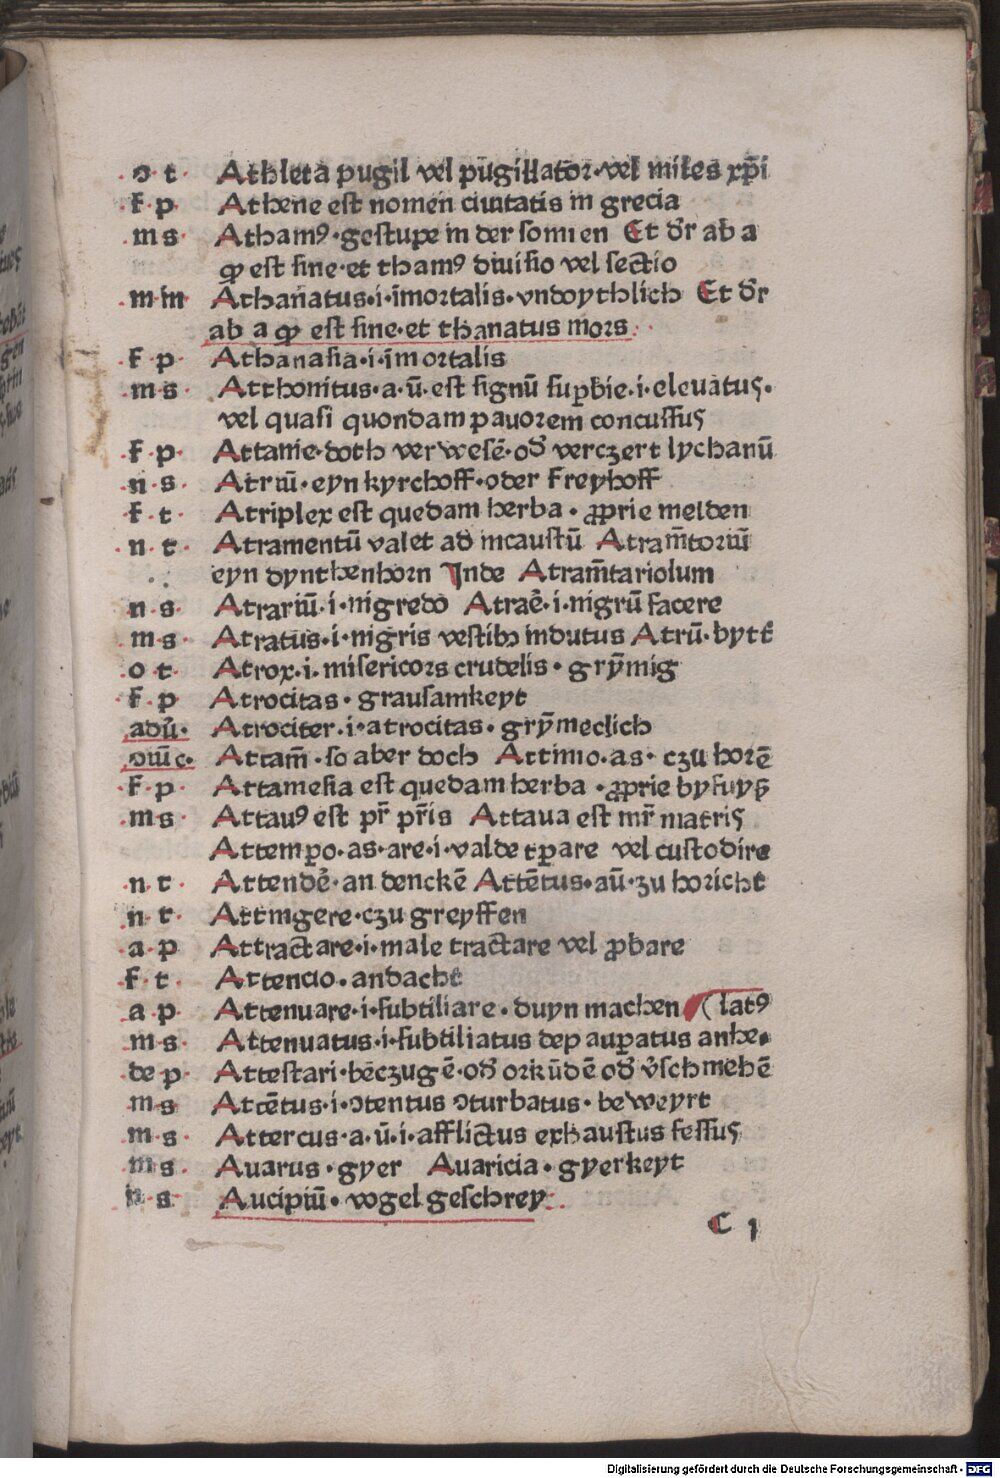 ↄ t · Athleta pugil vel pūgillator·vel miles xp̄i
f p · Athene est nomen ciuitatis in grecia
m s · Athamꝰ·gestupe in der sonnen Et dr̄ ab a
qđ est sine·et thamꝰ diuisio vel sectio
m m Athanatus·i·īmortalis·vndoythlich Et dr̄
ab a qđ est sine·et thanatus mors·
f · p · Athanasia·i·īmortalis
m s · Atthonitus·a·ū·est signū suꝑbie·i·eleuatus·
vel quasi quondam pauorem concussus
f · p · Attame·doth verwesē·od̄ verczert lychanū
n · s · Atriū·eyn kyrchoff·oder freyhoff
f · t · Atriplex est quedam herba·ꝓprie melden
n · t · Atramentū valet ad incaustū Atram̄toriū
eyn dynthenhorn Inde Atram̄tariolum
n · s · Atrariū·i·nigredo Atraē·i·nigrū facere
m · s · Atratus·i·nigris vestibꝰ indutus Atrū·bytt̄
o t · Atrox·i·misericors crudelis·grȳmig
f · p Atrocitas·grausamkeyt
adū· Atrociter·i·atrocitas·grȳmeclich
ↄiūc· Attam̄·so aber doch Attinio·as·czu horē
f · p · Attamesia est quedam herba·ꝓprie byfuyß
m s · Attauꝰ est pr̄ pr̄is Attaua est mr̄ matris
Attempo·as·are·i·valde tꝑare vel custodire
n · t · Attendē·an denckē Attētus·aū·zu horicht
n · t · Attingere·czu greyffen
a · p Attractare·i·male tractare vel ꝓbare
f · t · Attencio·andacht
a · p Attenuare·i·subtiliare·duyn machen ( latꝰ
m · s · Attenuatus·i·subtiliatus depauꝑatus anhe·
de p · Attestari·bēczugē·od̄ orkūdē od̄ v̄schmehē
m · s Attētus·i·ↄtentus ↄturbatus·beweyrt
m · s · Attercus·a·ū·i·afflictus exhaustus fessus
m s · Auarus·gyer Auaricia·gyerkeyt
n · s · Aucipiū·vogel geschrey·
C 1
Digitalisierung gefördert durch die Deutsche Forschungsgemeinschaft · DFG